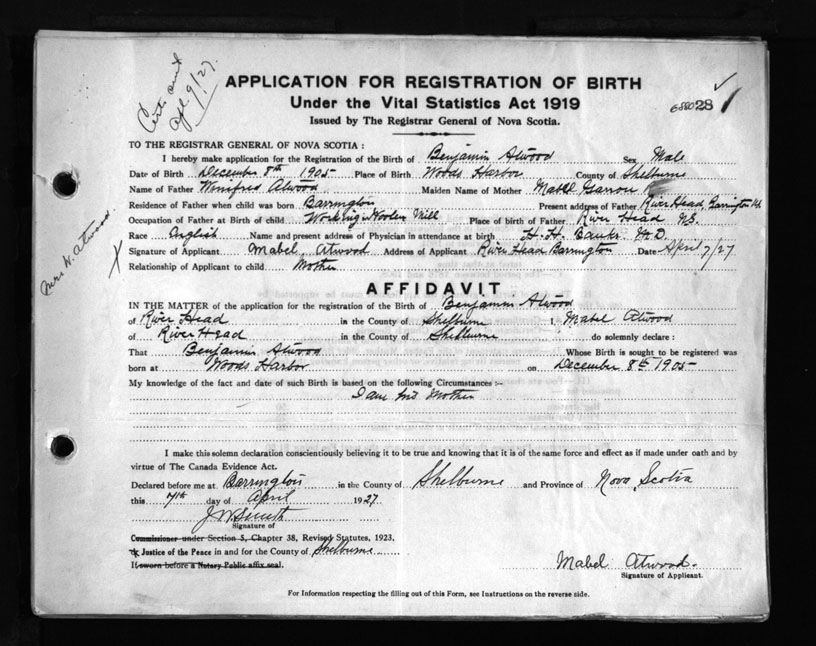 Cert. sent
Apl 9/27.
APPLICATION FOR REGISTRATION OF BIRTH
Under the Vital Statistics Act 1919
Issued by The Registrar General of Nova Scotia.
28
TO THE REGISTRAR GENERAL OF NOVA SCOTIA :
I hereby make application for the Registration of the Birth of Benjamin Atwood Sex Male
Date of Birth December 8th 1905 Place of Birth Woods Harbor County of Shelburne
Name of Father Winifred Atwood Maiden Name of Mother Mabel
Residence of Father when child was born Barrington Present address of Father River Head, Barrington
Occupation of Father at Birth of child Working Woolen Mill Place of birth of Father River Head N.S.
Race English Name and present address of Physician in attendance at birth H. H. Banks M.D.
Signature of Applicant Mabel Atwood Address of Applicant River Head Barrington Date April 7/27
Relationship of Applicant to child Mother
Mrs W. Atwood.
AFFIDAVIT
IN THE MATTER of the application for registration of the Birth of Benjamin Atwood
of River Head in the County of Shelburne I, Mabel Atwood
of River Head in the County of Shelburne do solemnly declare :
That Benjamin Atwood Whose Birth is sought to be registered was
born at Woods Harbor on December 8th 1905
My knowledge of the fact and date of such Birth is based on the following Circumstances :-
I am his Mother
I make this solemn declaration conscientiously believing it to be true and knowing that it is of the same force and effect as if made under oath and by
virtue of The Canada Evidence Act.
Declared before me at Barrington in the County of Shelburne and Province of Nova Scotia
this 7th day of April 1927.
Signature of
Commissioner under Section 5, Chapter 38, Revised Statutes, 1923.
Justice of the Peace in and for the County of Shelburne
If sworn before a Notary Public affix seal.
Mabel Atwood.
Signature of Applicant.
For Information respecting the filling out of this Form, see Instructions on the reverse side.